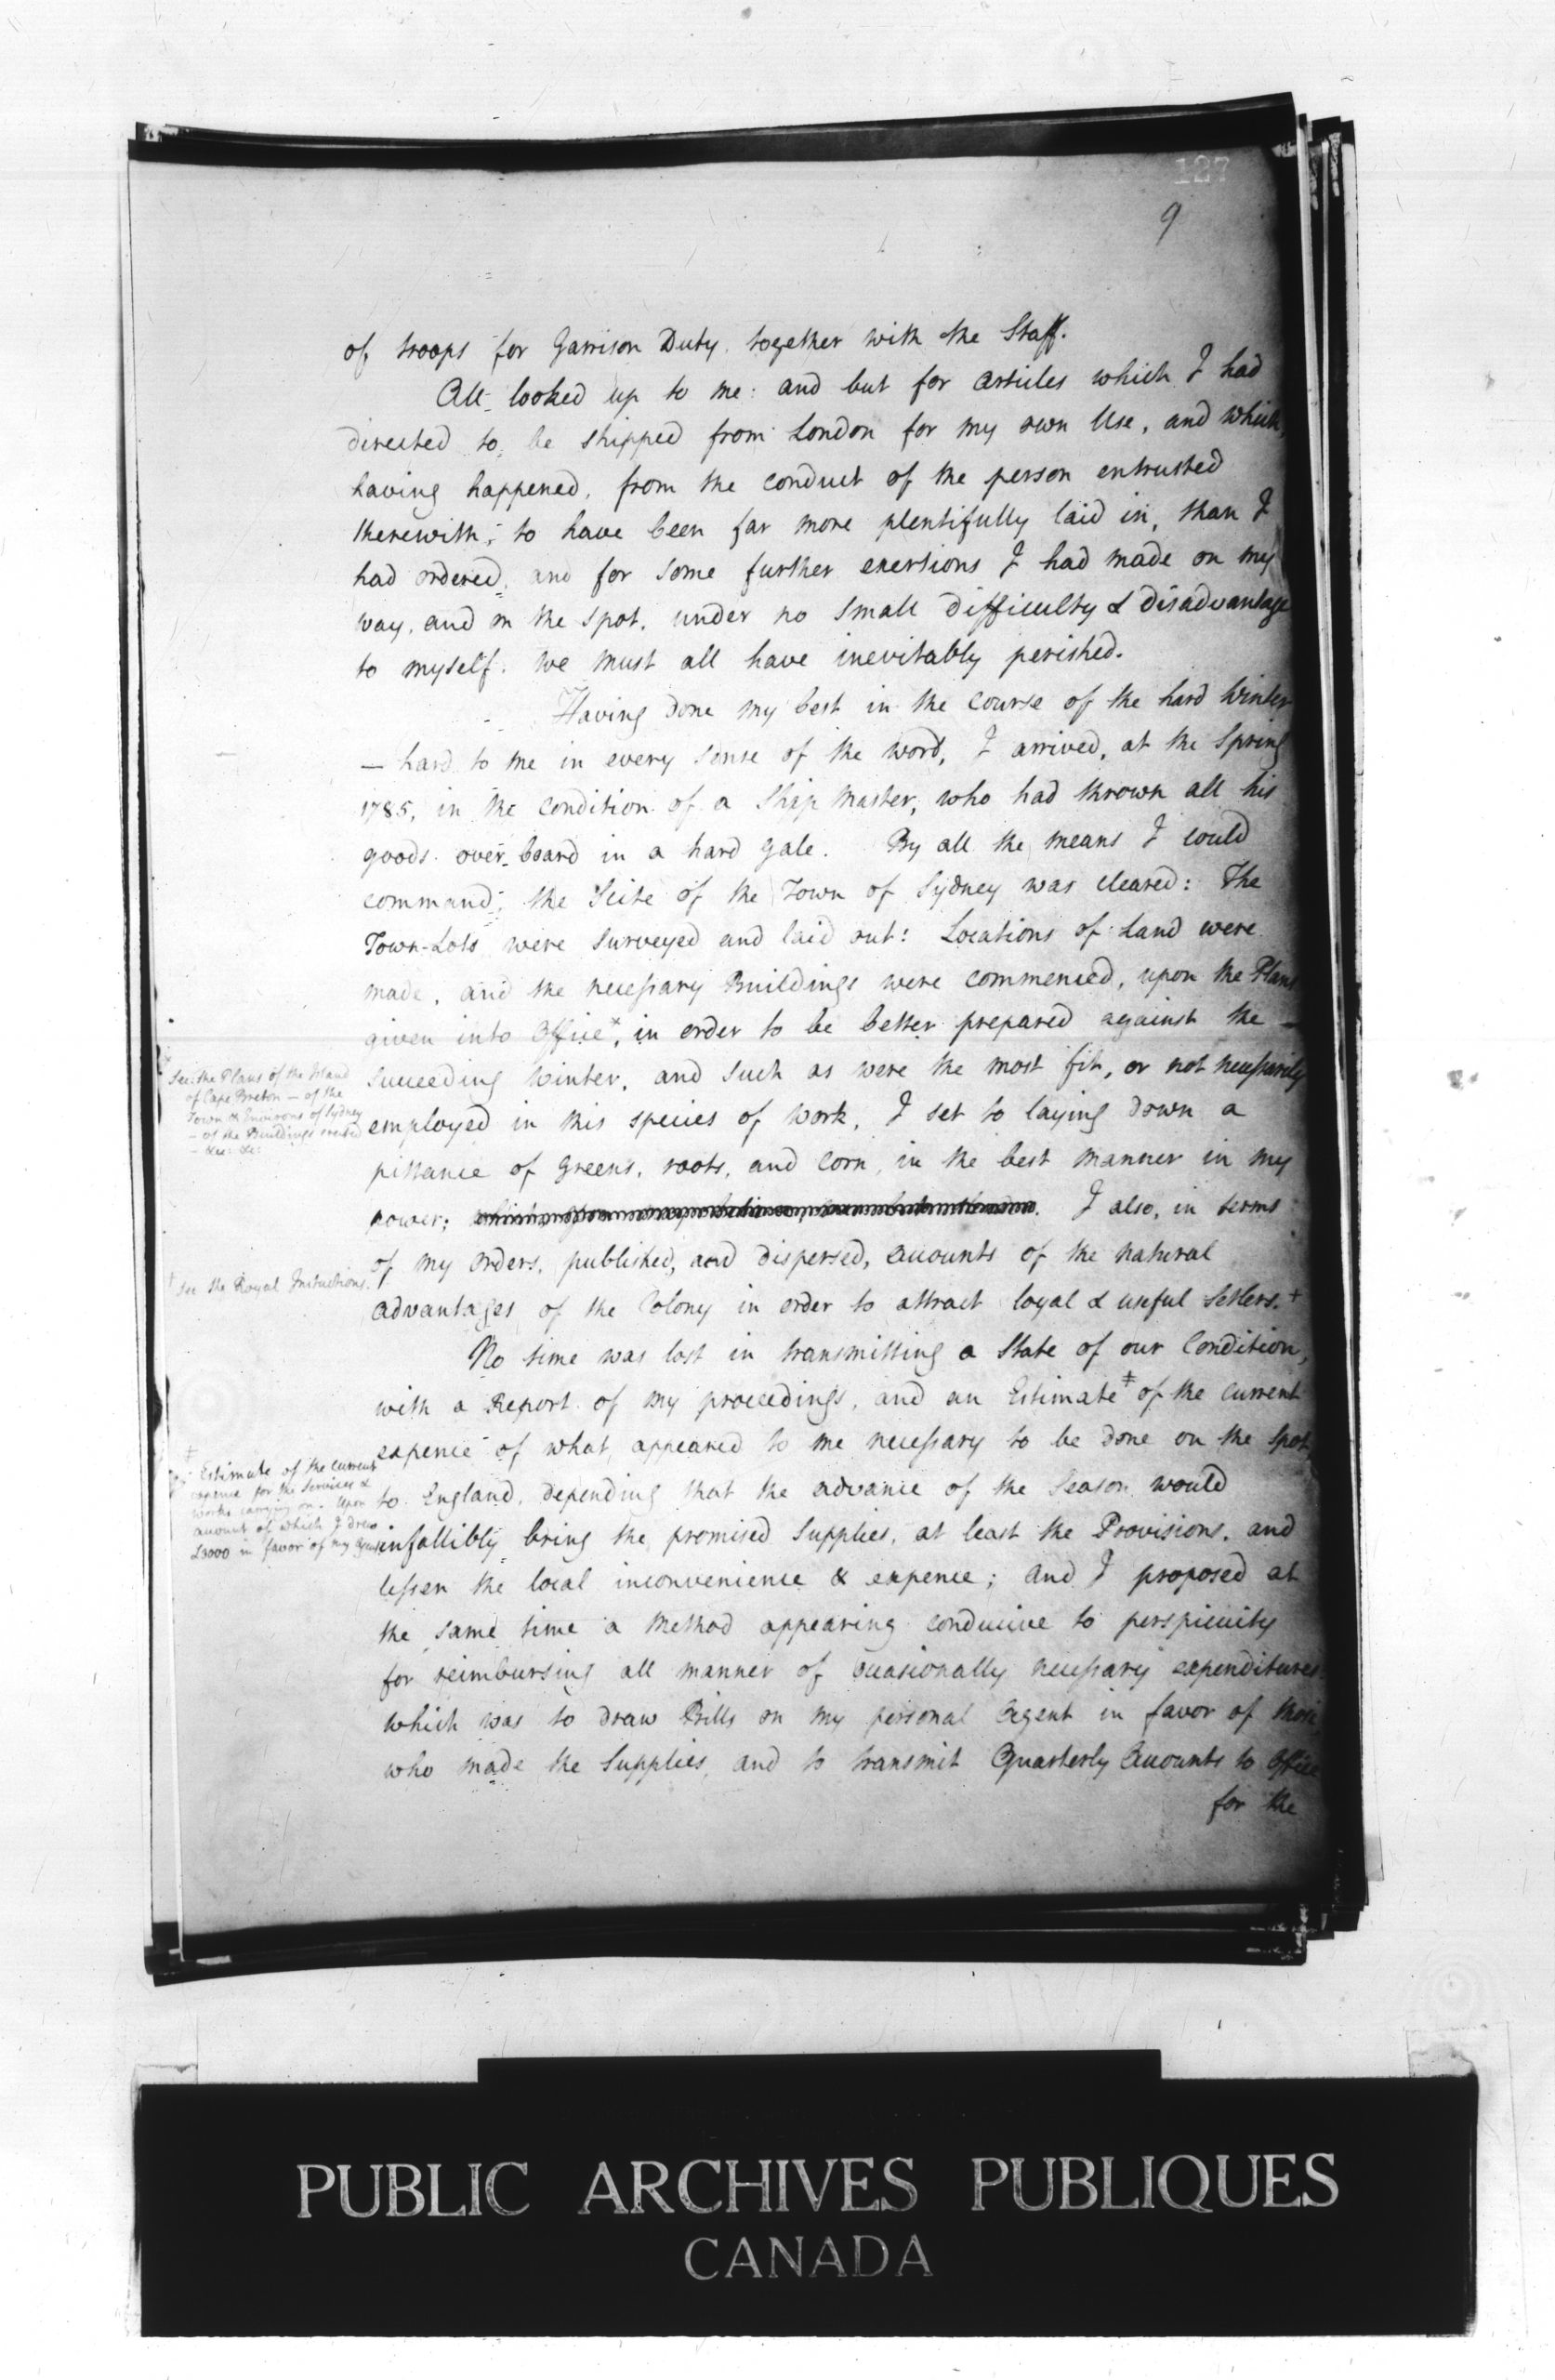 127
9
of troops for Garrison Duty together with the Staff.
All looked up to me: and but for articles which I had
directed to be shipped from London for my own Use, and which,
having happened, from the conduct of the person entrusted
therewith, to have been far more plentifully laid in, than I
had ordered, and for some further exertions I had made on my
way, and on the spot, under no small difficulty & disadvantage
to myself: we must all have inevitably perished.
Having done my best in the course of the hard Winter
— hard to me in every sense of the word, I arrived, at the Spring
1785, in the condition of a Ship Master, who had thrown all his
goods over-board in a hard gale. By all the means I could
command; the Scite of the Town of Sydney was cleared: The
Town-Lots were surveyed and laid out: Locations of Land were
made, and the necessary Buildings were commenced, upon the Plans
given into Office*, in order to be better prepared against the —
succeeding Winter, and such as were the most fit, or not necessarily
employed in this species of work, I set to laying down a
pittance of greens, roots, and corn, in the best manner in my
power; I also, in terms
of my orders, published, and dispersed, accounts of the natural
advantages of the Colony in order to attract loyal & useful Setlers.†
No time was lost in transmitting a State of our Condition,
with a Report of my proceedings, and an Estimate‡ of the current
expence of what appeared to me necessary to be done on the spot,
to England, depending that the advance of the Season would
infallibly bring the promised Supplies, at least the Provisions, and
lessen the local inconvenience & expence; and I proposed at
the same time a Method appearing conducive to perspicuity
for reimbursing all manner of occasionally necessary expenditures
which was to draw Bills on my personal Agent in favor of those
who made the Supplies, and to transmit Quarterly Accounts to Office
for the
* See the Plans of the Island
of Cape Breton — of the
Town & Environs of Sydney
— of the Buildings erected
— &c: &c:
† See the Royal Instructions.
‡ Estimate of the current
expence for the Services &
works carrying on. Upon
account of which I drew
£3000 in favor of my Agent
PUBLIC ARCHIVES PUBLIQUES
CANADA